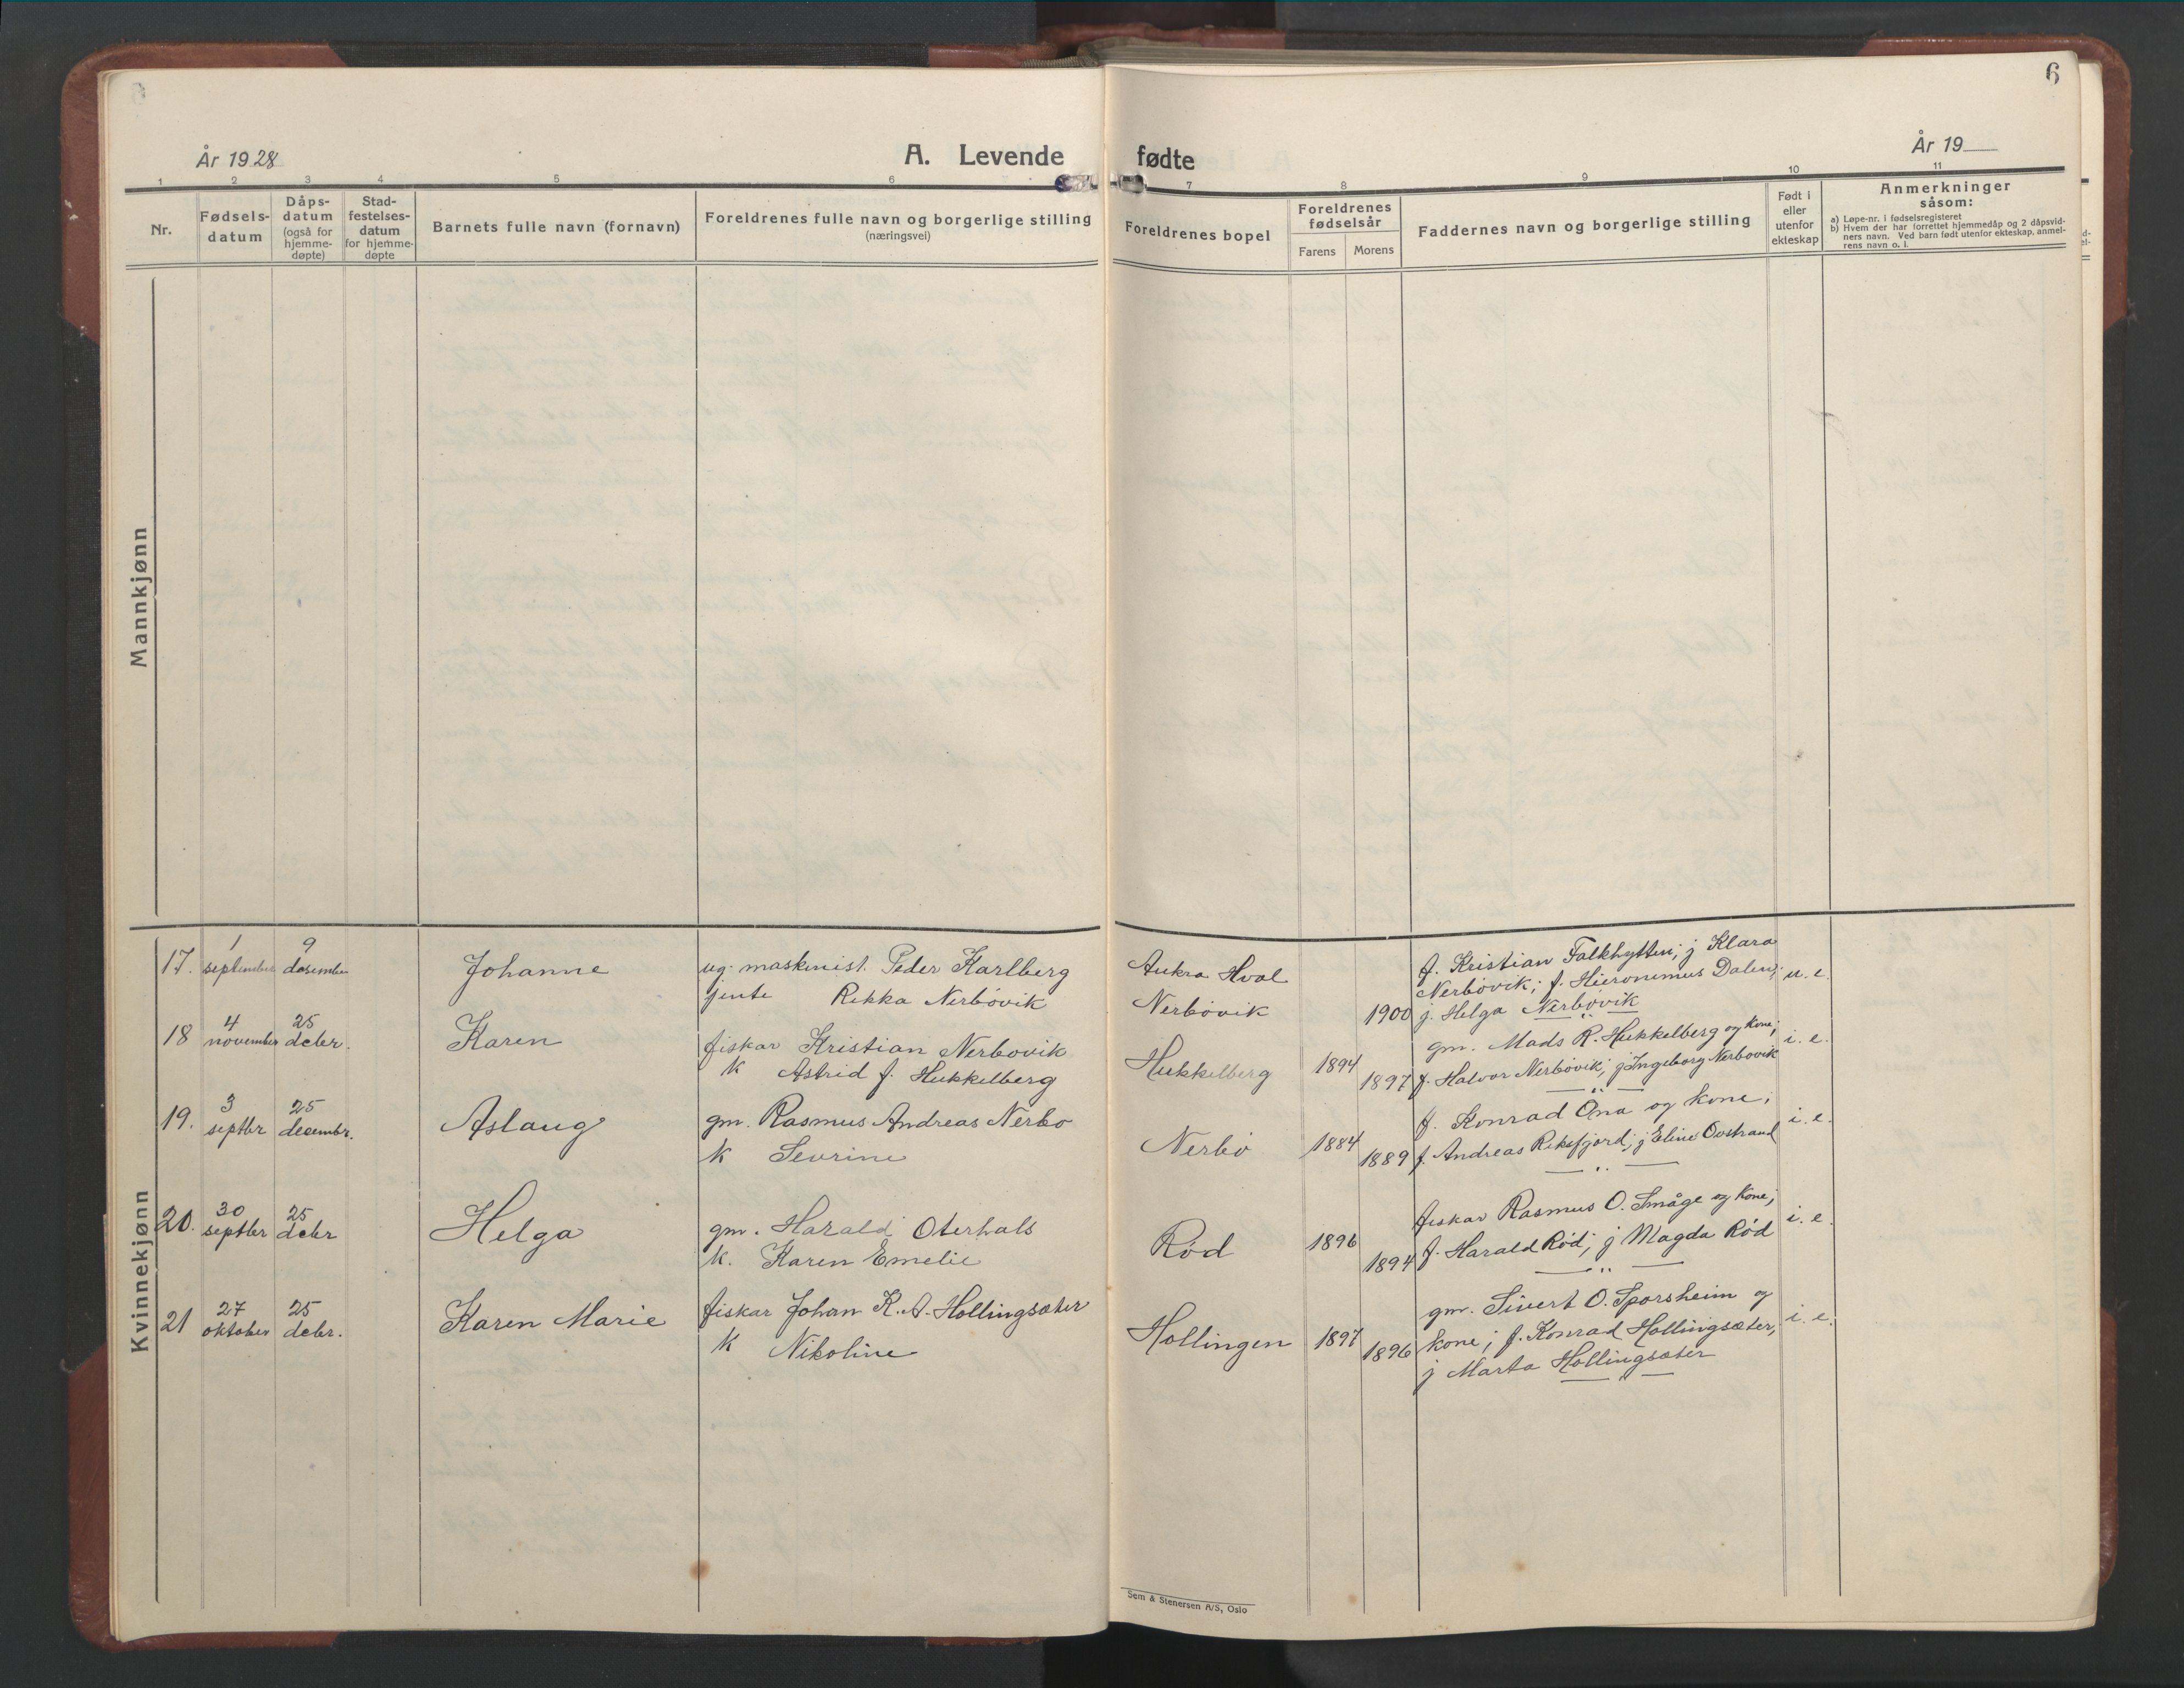 6
År 1928
A. Levende fødte
År 19
1 2 3 4 5 6 7 8 9 10 11
Nr.
Fødsels-
datum
Dåps-
datum
(også for
hjemme-
døpte)
Stad-
festelses-
datum
for hjemme-
døpte
Barnets fulle navn (fornavn)
Foreldrenes fulle navn og borgerlige stilling
(næringsvei)
Foreldrenes bopel
Foreldrenes
fødselsår
Farens Morens
Faddernes navn og borgerlige stilling
Født i
eller
utenfor
ekteskap
Anmerkninger
såsom:
a) Løpe-nr. i fødselsregisteret
b) Hvem der har forrettet hjemmedåp og 2 dåpsvid-
ners navn. Ved barn født utenfor ekteskap, anmel-
rens navn o. l.
Mannkjønn
Kvinnekjønn
17. 1 september 9 desember Johanne
ug. maskinist. Peder Karlberg
jente Rikka Nerbövik
Aukra Hval
Nerbövik
1900
f. Kristian Falkhytten; j Klara
Nerbövik; f. Hieronimus Dalen;
j. Helga Nerbövik
u. e.
18 4 november 25 decbr. Karen
fiskar Kristian Nerbövik
k Astrid f. Hukkelberg
Hukkelberg 1894 1897
gm. Mads R. Hukkelberg og kone;
f. Halvor Nerbövik; j Ingeborg Nerbovik
i. e.
19. 3 septbr 25 decembr. Aslaug
gm. Rasmus Andreas Nerbo
k Sevrine
Nerbö 1884 1889
f. Konrad Ona og kone;
f. Andreas Reksfjord; j Eline Ovstrand
i. e.
20. 30 septbr 25 decbr Helga
gm. Harald Oterhals
k. Karen Emelie
Röd 1896 1894
fiskar Rasmus O. Småge og kone;
f. Harald Röd; j Magda Röd
i. e.
21 27 oktober 25 decbr. Karen Marie
fiskar Johan K. A. Hollingsæter
k Nikoline
Hollingen 1897 1896
gm. Sivert O. Sporsheim og
kone; f. Konrad Hollingsæter;
j Marta Hollingsæter
i. e.
Sem & Stenersen A/S, Oslo